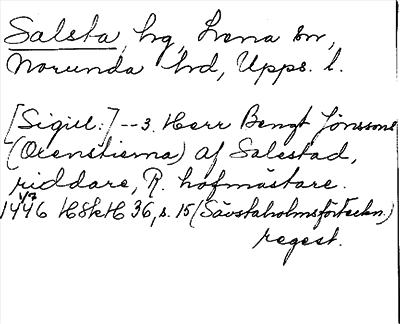 Salsta, hg, Lena sn,
Norunda hd, Upps. l.
[Sigill:] --3. Herr Bengt Jönssons
(Oxenstierna) af Salestad,
riddare, R. hofmästare.
1/7
1446 HSkH 36, s. 15 (Säfstaholmsförteckn.)
regest.